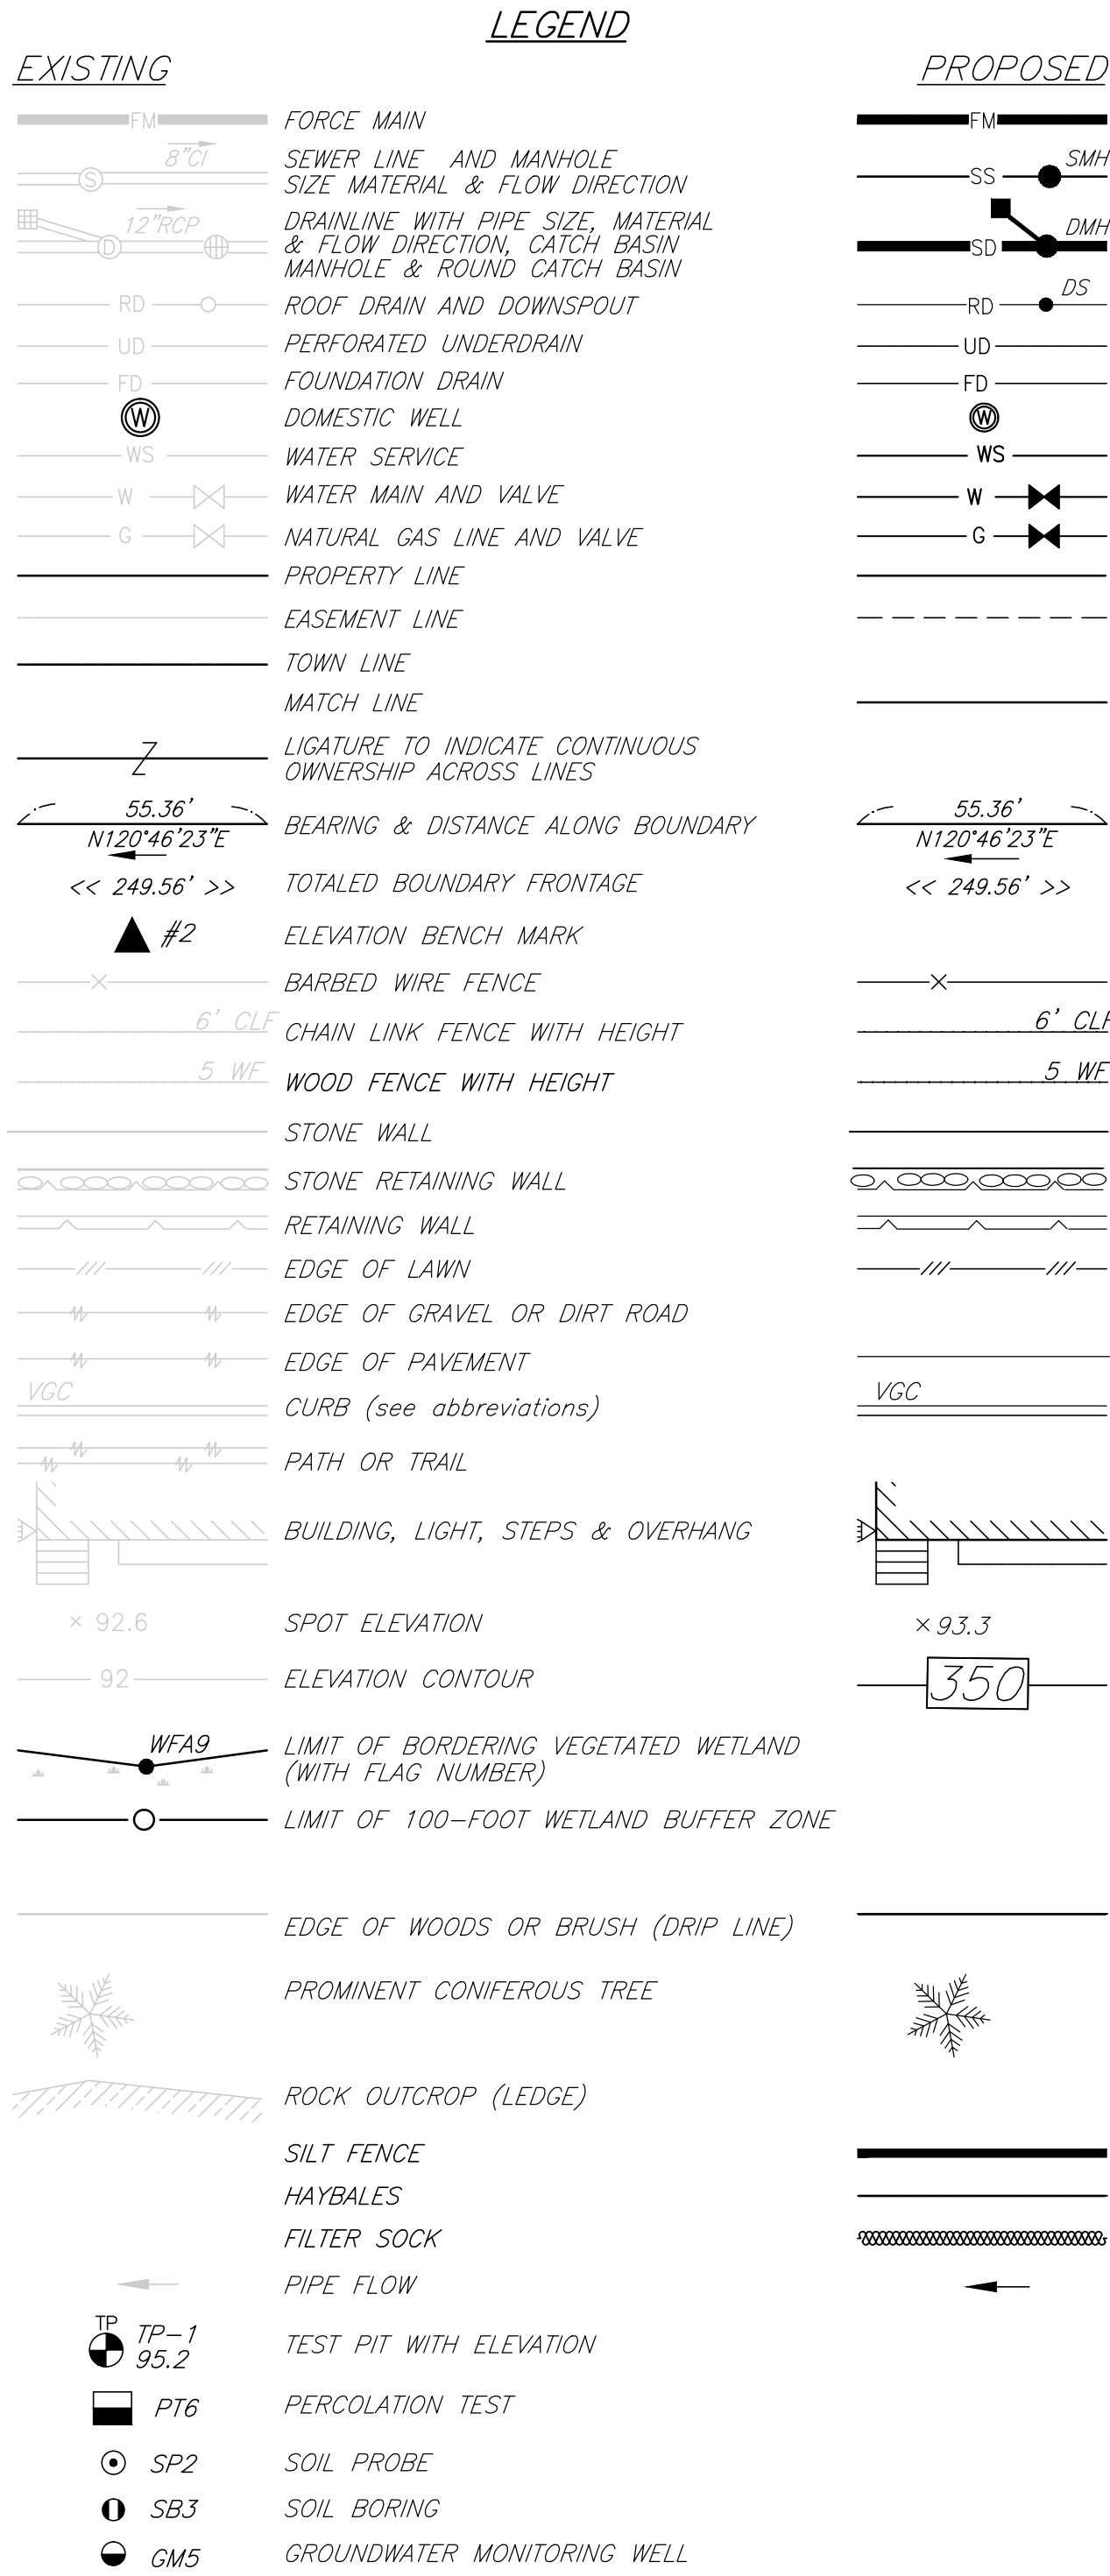 LEGEND
EXISTING PROPOSED
FM FORCE MAIN FM
8"CI SEWER LINE AND MANHOLE SMH
S SIZE MATERIAL & FLOW DIRECTION SS
12"RCP DRAINLINE WITH PIPE SIZE, MATERIAL DMH
D & FLOW DIRECTION, CATCH BASIN SD
MANHOLE & ROUND CATCH BASIN
RD ROOF DRAIN AND DOWNSPOUT RD DS
UD PERFORATED UNDERDRAIN UD
FD FOUNDATION DRAIN FD
W DOMESTIC WELL W
WS WATER SERVICE WS
W WATER MAIN AND VALVE W
G NATURAL GAS LINE AND VALVE G
PROPERTY LINE
EASEMENT LINE
TOWN LINE
MATCH LINE
Z LIGATURE TO INDICATE CONTINUOUS
OWNERSHIP ACROSS LINES
55.36' BEARING & DISTANCE ALONG BOUNDARY 55.36'
N120°46'23"E N120°46'23"E
<< 249.56' >> TOTALED BOUNDARY FRONTAGE << 249.56' >>
#2 ELEVATION BENCH MARK
BARBED WIRE FENCE
6' CLF CHAIN LINK FENCE WITH HEIGHT 6' CLF
5 WF WOOD FENCE WITH HEIGHT 5 WF
STONE WALL
STONE RETAINING WALL
RETAINING WALL
EDGE OF LAWN
EDGE OF GRAVEL OR DIRT ROAD
EDGE OF PAVEMENT
VGC CURB (see abbreviations) VGC
PATH OR TRAIL
BUILDING, LIGHT, STEPS & OVERHANG
× 92.6 SPOT ELEVATION × 93.3
92 ELEVATION CONTOUR 350
WFA9 LIMIT OF BORDERING VEGETATED WETLAND
(WITH FLAG NUMBER)
LIMIT OF 100-FOOT WETLAND BUFFER ZONE
EDGE OF WOODS OR BRUSH (DRIP LINE)
PROMINENT CONIFEROUS TREE
ROCK OUTCROP (LEDGE)
SILT FENCE
HAYBALES
FILTER SOCK
PIPE FLOW
TP
TP-1 TEST PIT WITH ELEVATION
95.2
PT6 PERCOLATION TEST
SP2 SOIL PROBE
SB3 SOIL BORING
GM5 GROUNDWATER MONITORING WELL